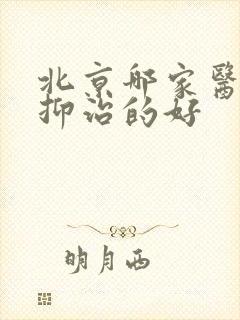 北京邮家醫
抑治的好
明月西